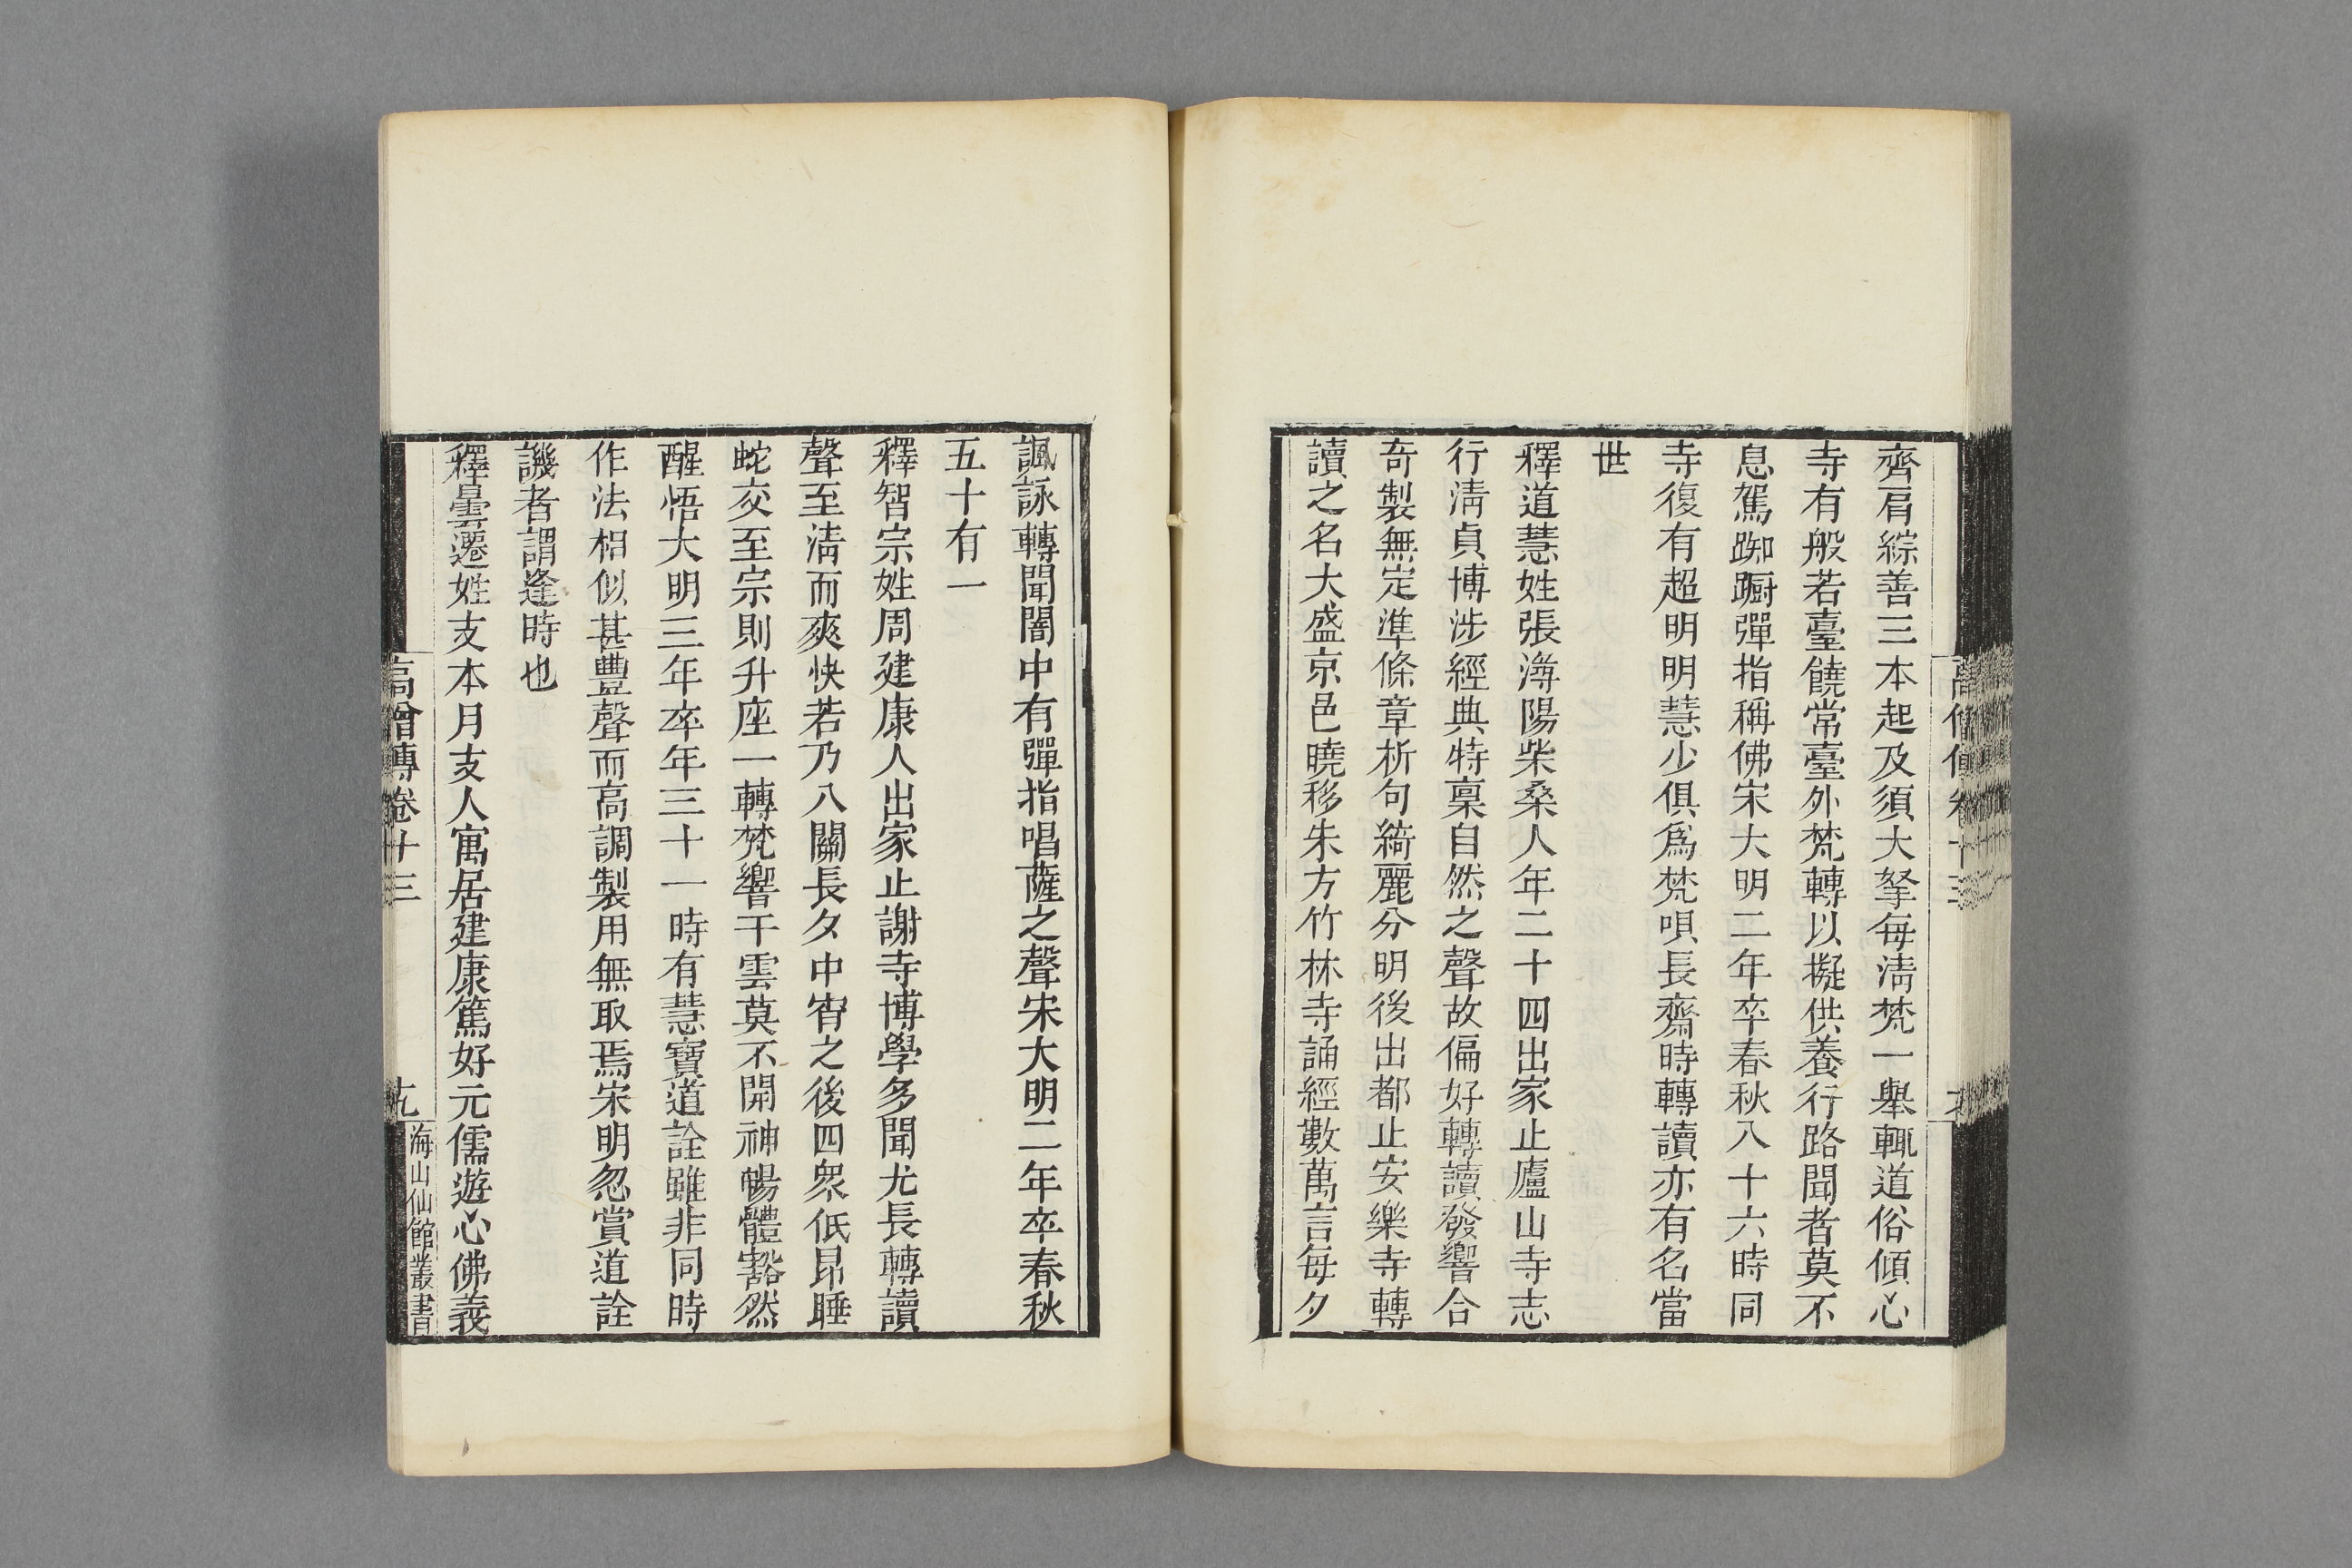 齊肩綜善三本起及須大拏每淸梵一舉輒道俗傾心
寺有般若臺饒常臺外梵轉以擬供養行路聞者莫不
息駕踟蹰彈指稱佛宋大明二年卒春秋八十六時同
寺復有超明明慧少俱爲梵唄長齋時轉讀亦有名當
世
釋道慧姓張潯陽柴桑人年二十四出家止廬山寺志
行淸貞博涉經典特稟自然之聲故偏好轉讀發響合
奇製無定準條章析句綺麗分明後出都止安樂寺轉
讀之名大盛京邑曉移朱方竹林寺誦經數萬言每夕
諷詠轉聞闇中有彈指唱薩之聲宋大明二年卒春秋
五十有一
釋智宗姓周建康人出家止謝寺博學多聞尤長轉讀
聲至淸而爽快若乃八關長夕中宵之後四衆低昂睡
蛇交至宗則升座一轉梵響干雲莫不開神暢體豁然
醒悟大明三年卒年三十一時有慧寶道詮雖非同時
作法相似甚豊聲而高調製用無取焉宋明忽賞道詮
譏者謂逢時也
釋曇遷姓支本月支人寓居建康篤好元儒遊心佛義
高僧傳卷十三
海山仙館叢書